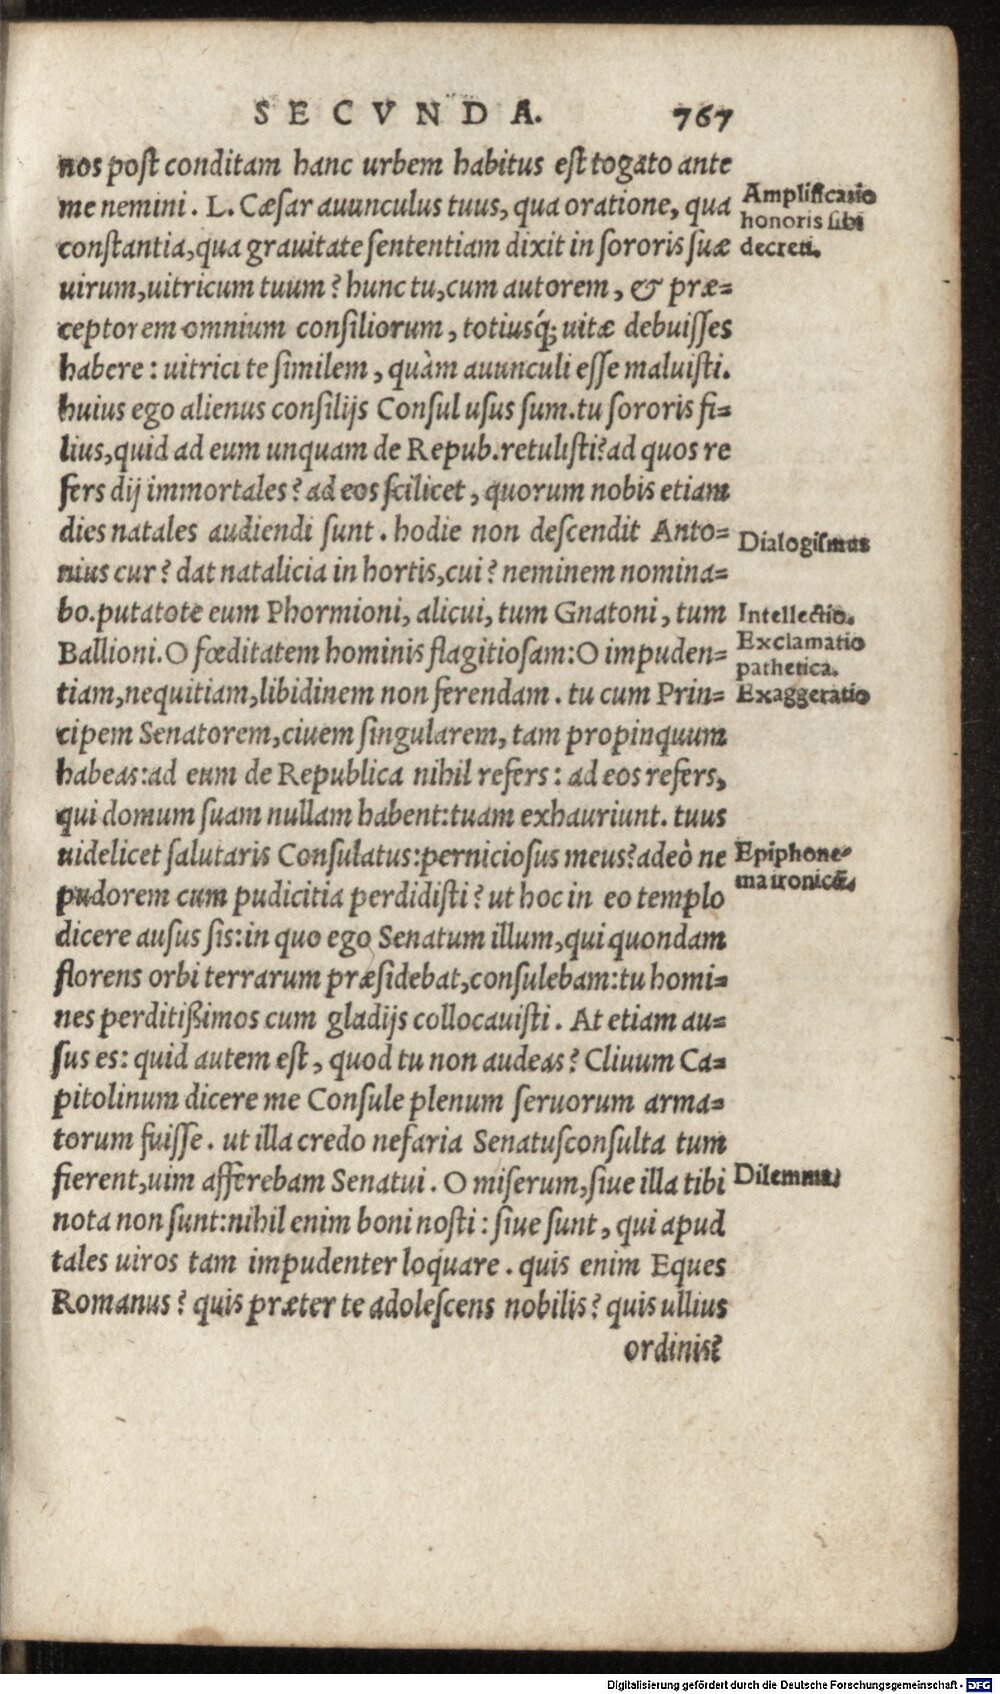 SECVNDA. 767
nos post conditam hanc urbem habitus est togato ante
me nemini. L. Cæsar auunculus tuus, qua oratione, qua
constantia, qua grauitate sententiam dixit in sororis suæ
uirum, uitricum tuum? hunc tu, cum autorem, & præ=
ceptorem omnium consiliorum, totiusq́; uitæ debuisses
habere: uitrici te similem, quàm auunculi esse maluisti.
huius ego alienus consilijs Consul usus sum. tu sororis fi=
lius, quid ad eum unquam de Repub. retulisti? ad quos re
fers dij immortales? ad eos scilicet, quorum nobis etiam
dies natales audiendi sunt. hodie non descendit Anto=
nius cur? dat natalicia in hortis, cui? neminem nomina=
bo. putatote eum Phormioni, alicui, tum Gnatoni, tum
Ballioni. O fœditatem hominis flagitiosam: O impuden=
tiam, nequitiam, libidinem non ferendam. tu cum Prin=
cipem Senatorem, ciuem singularem, tam propinquum
habeas: ad eum de Republica nihil refers: ad eos refers,
qui domum suam nullam habent: tuam exhauriunt. tuus
uidelicet salutaris Consulatus: perniciosus meus? adeò ne
pudorem cum pudicitia perdidisti? ut hoc in eo templo
dicere ausus sis: in quo ego Senatum illum, qui quondam
florens orbi terrarum præsidebat, consulebam: tu homi=
nes perditißimos cum gladijs collocauisti. At etiam au=
sus es: quid autem est, quod tu non audeas? Cliuum Ca=
pitolinum dicere me Consule plenum seruorum arma=
torum fuisse. ut illa credo nefaria Senatusconsulta tum
fierent, uim afferebam Senatui. O miserum, siue illa tibi
nota non sunt: nihil enim boni nosti: siue sunt, qui apud
tales uiros tam impudenter loquare. quis enim Eques
Romanus? quis præter te adolescens nobilis? quis ullius
ordinis?
Amplificatio
honoris sibi
decreti.
Dialogismus
Intellectio.
Exclamatio
pathetica.
Exaggeratio
Epiphone-
ma ironicū.
Dilemma.
Digitalisierung gefördert durch die Deutsche Forschungsgemeinschaft - DFG